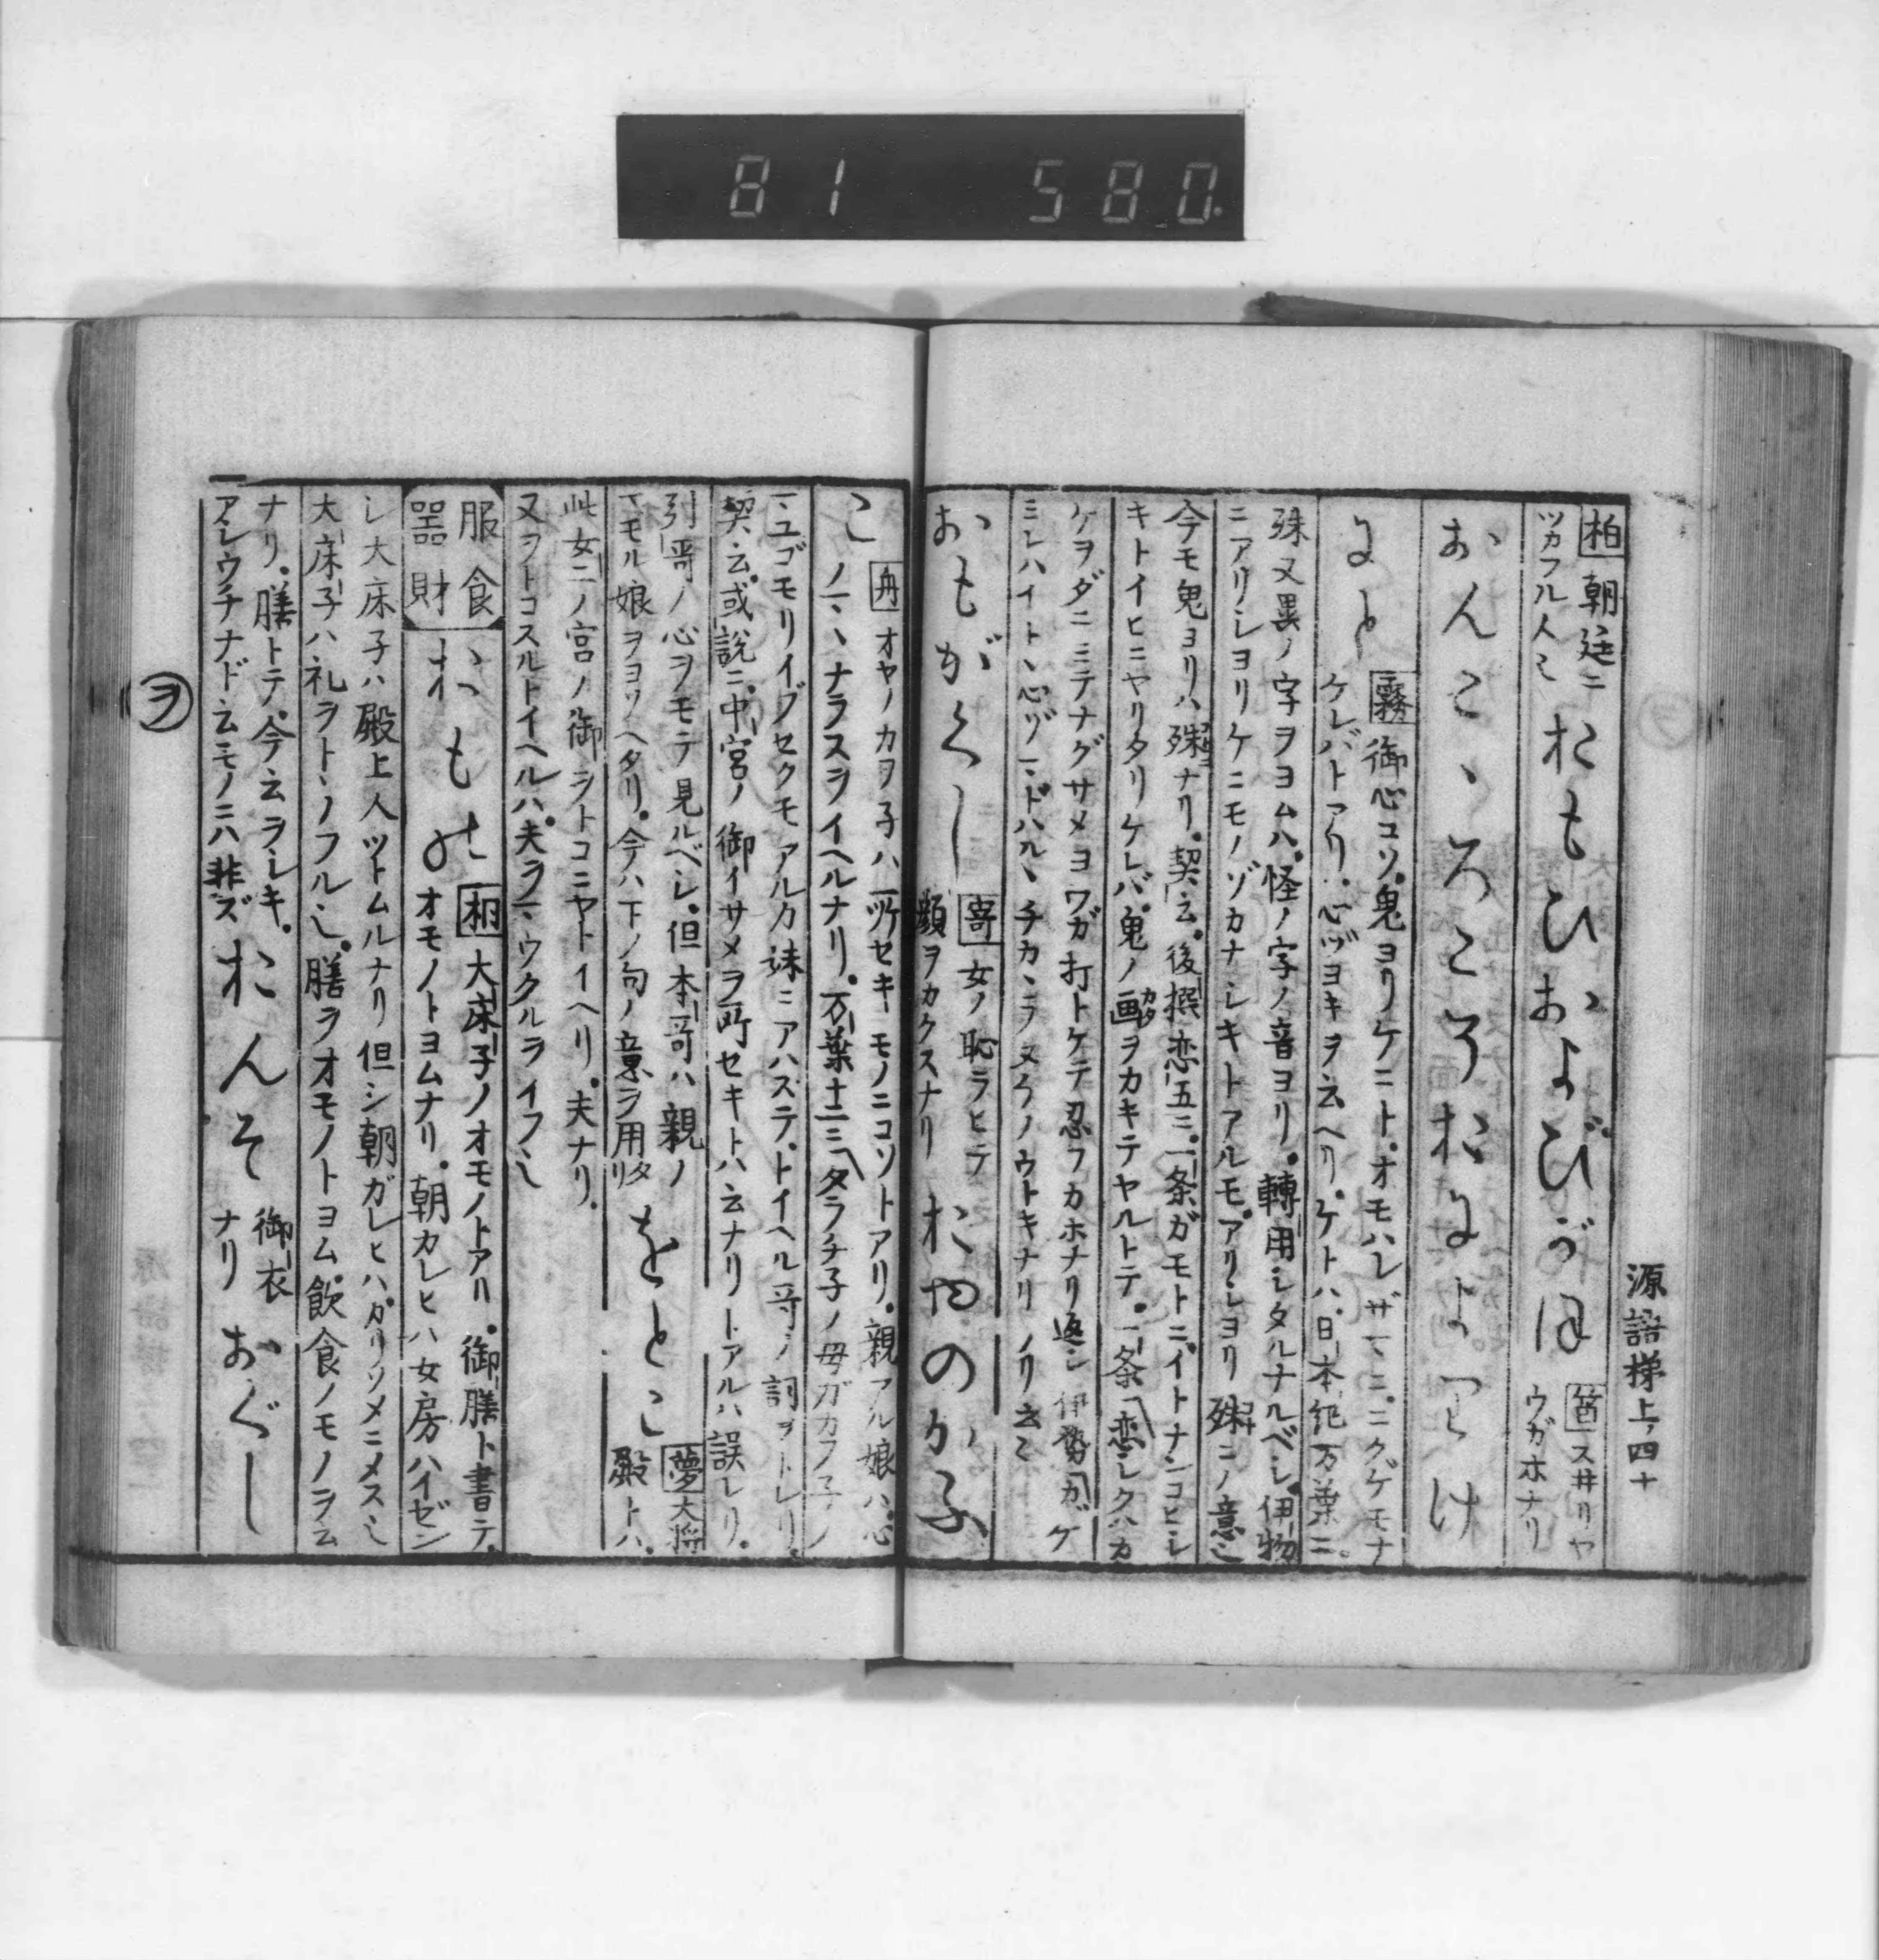 81 580.
源語梯上ノ四十
柏 朝廷ニ
ツカフル人ミ
おもひおよびがほ
笛 スキリヤ
ウガホナリ
おんこゝろこそおによりけ
にと
霧 御心コソ。鬼ヨリケニト。オモハレザマニ。ニクゲモナ
ケレバトアリ。心ヅヨキヲ云ヘリ。ケトハ。日本紀万葉ニ。
殊又異ノ字ヲヨムハ。怪ノ字ノ音ヨリ。轉用シタルナルベシ。伊物
ニアリシヨリケニモノゾカナシキトアルモ。アリシヨリ殊ニノ意ミ
今モ鬼ヨリハ殊ナリ。契云。後撰恋五ニ。一条ガモトニ。イトナンコヒシ
キトイヒニヤリタリケレバ。鬼ノ画ヲカキテヤルトテ。一条 恋シクハカ
ケヲダニミテナグサメヨワガ打トケテ忍フカホナリ 返シ 伊勢 カゲ
ミレハイトヽ心ゾマドハルヽチカヽラヌケノウトキナリケリ云ミ
おもがくし
寄 女ノ恥ラヒテ
顔ヲカクスナリ
おやのかふ
こ
舟 オヤノカヲ子ハ所セキモノニコソトアリ。親アル娘ハ。心
ノマヽナラヌヲイヘルナリ。万葉十二ニ タラチ子ノ母ガカフ子ノ
マユゴモリイブセクモアルカ妹ニアハズテ。トイヘル哥ノ詞ヲトレリ。
契云。或説ニ。中宮ノ御イサメヲ所セキトハ云ナリトアルハ誤レリ。
引哥ノ心ヲモテ見ルベシ。但本哥ハ親ノ
マモル娘ヲヨソヘタリ。今ハ下ノ句ノ意ヲ用タリ
をとこ
夢 大将
殿トハ。
此女二ノ宮ノ御ヲトコニヤトイヘリ。夫ナリ。
又ヲトコスルトイヘルハ。夫ヲマウクルヲイフミ
服食
器財
おもの
桐 大床子ノオモノトアリ。御膳ト書テ。
オモノトヨムナリ。朝カレヒハ女房ハイゼン
シ大床子ハ殿上人ツトムルナリ但シ朝ガレヒハ。カリソメニメスミ
大床子ハ礼ヲトヽノフルミ。膳ヲオモノトヨム。飲食ノモノヲ云
ナリ。膳トテ。今云ヲシキ。
アシウチナド云モノニハ非ズ
おんそ
御衣
ナリ
おぐし
ヲ